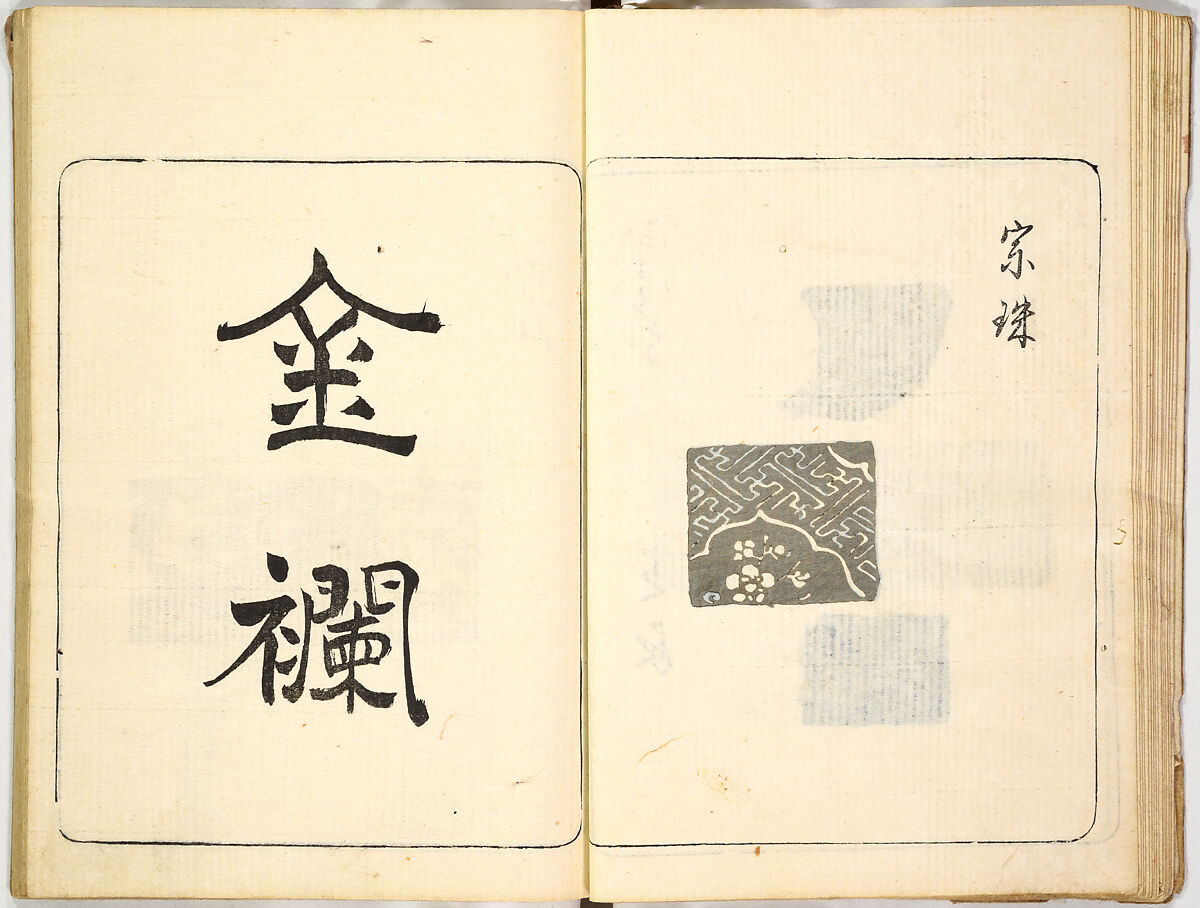 宗珠
金襴